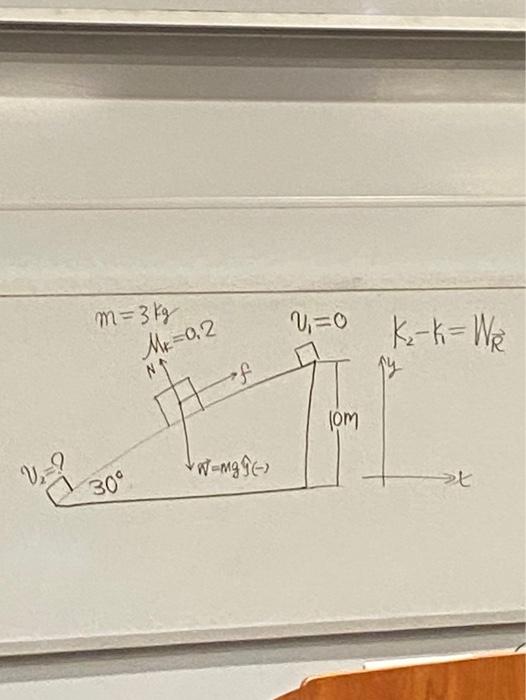 m=3kg
μk=0.2
N
f
v₁=0
K₂-K₁=W_R⃗
y
10m
v₂=?
30°
W⃗=mgŷ(-)
x